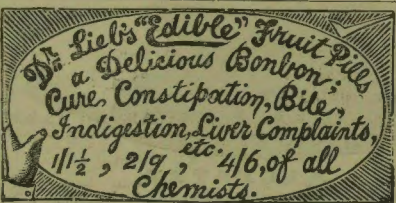 Dr. Lieb's "Edible" Fruit Pills
a Delicious Bonbon;
Cure Constipation, Bile,
Indigestion, Liver Complaints,
etc.
1/1½, 2/9, 4/6, of all
Chemists.